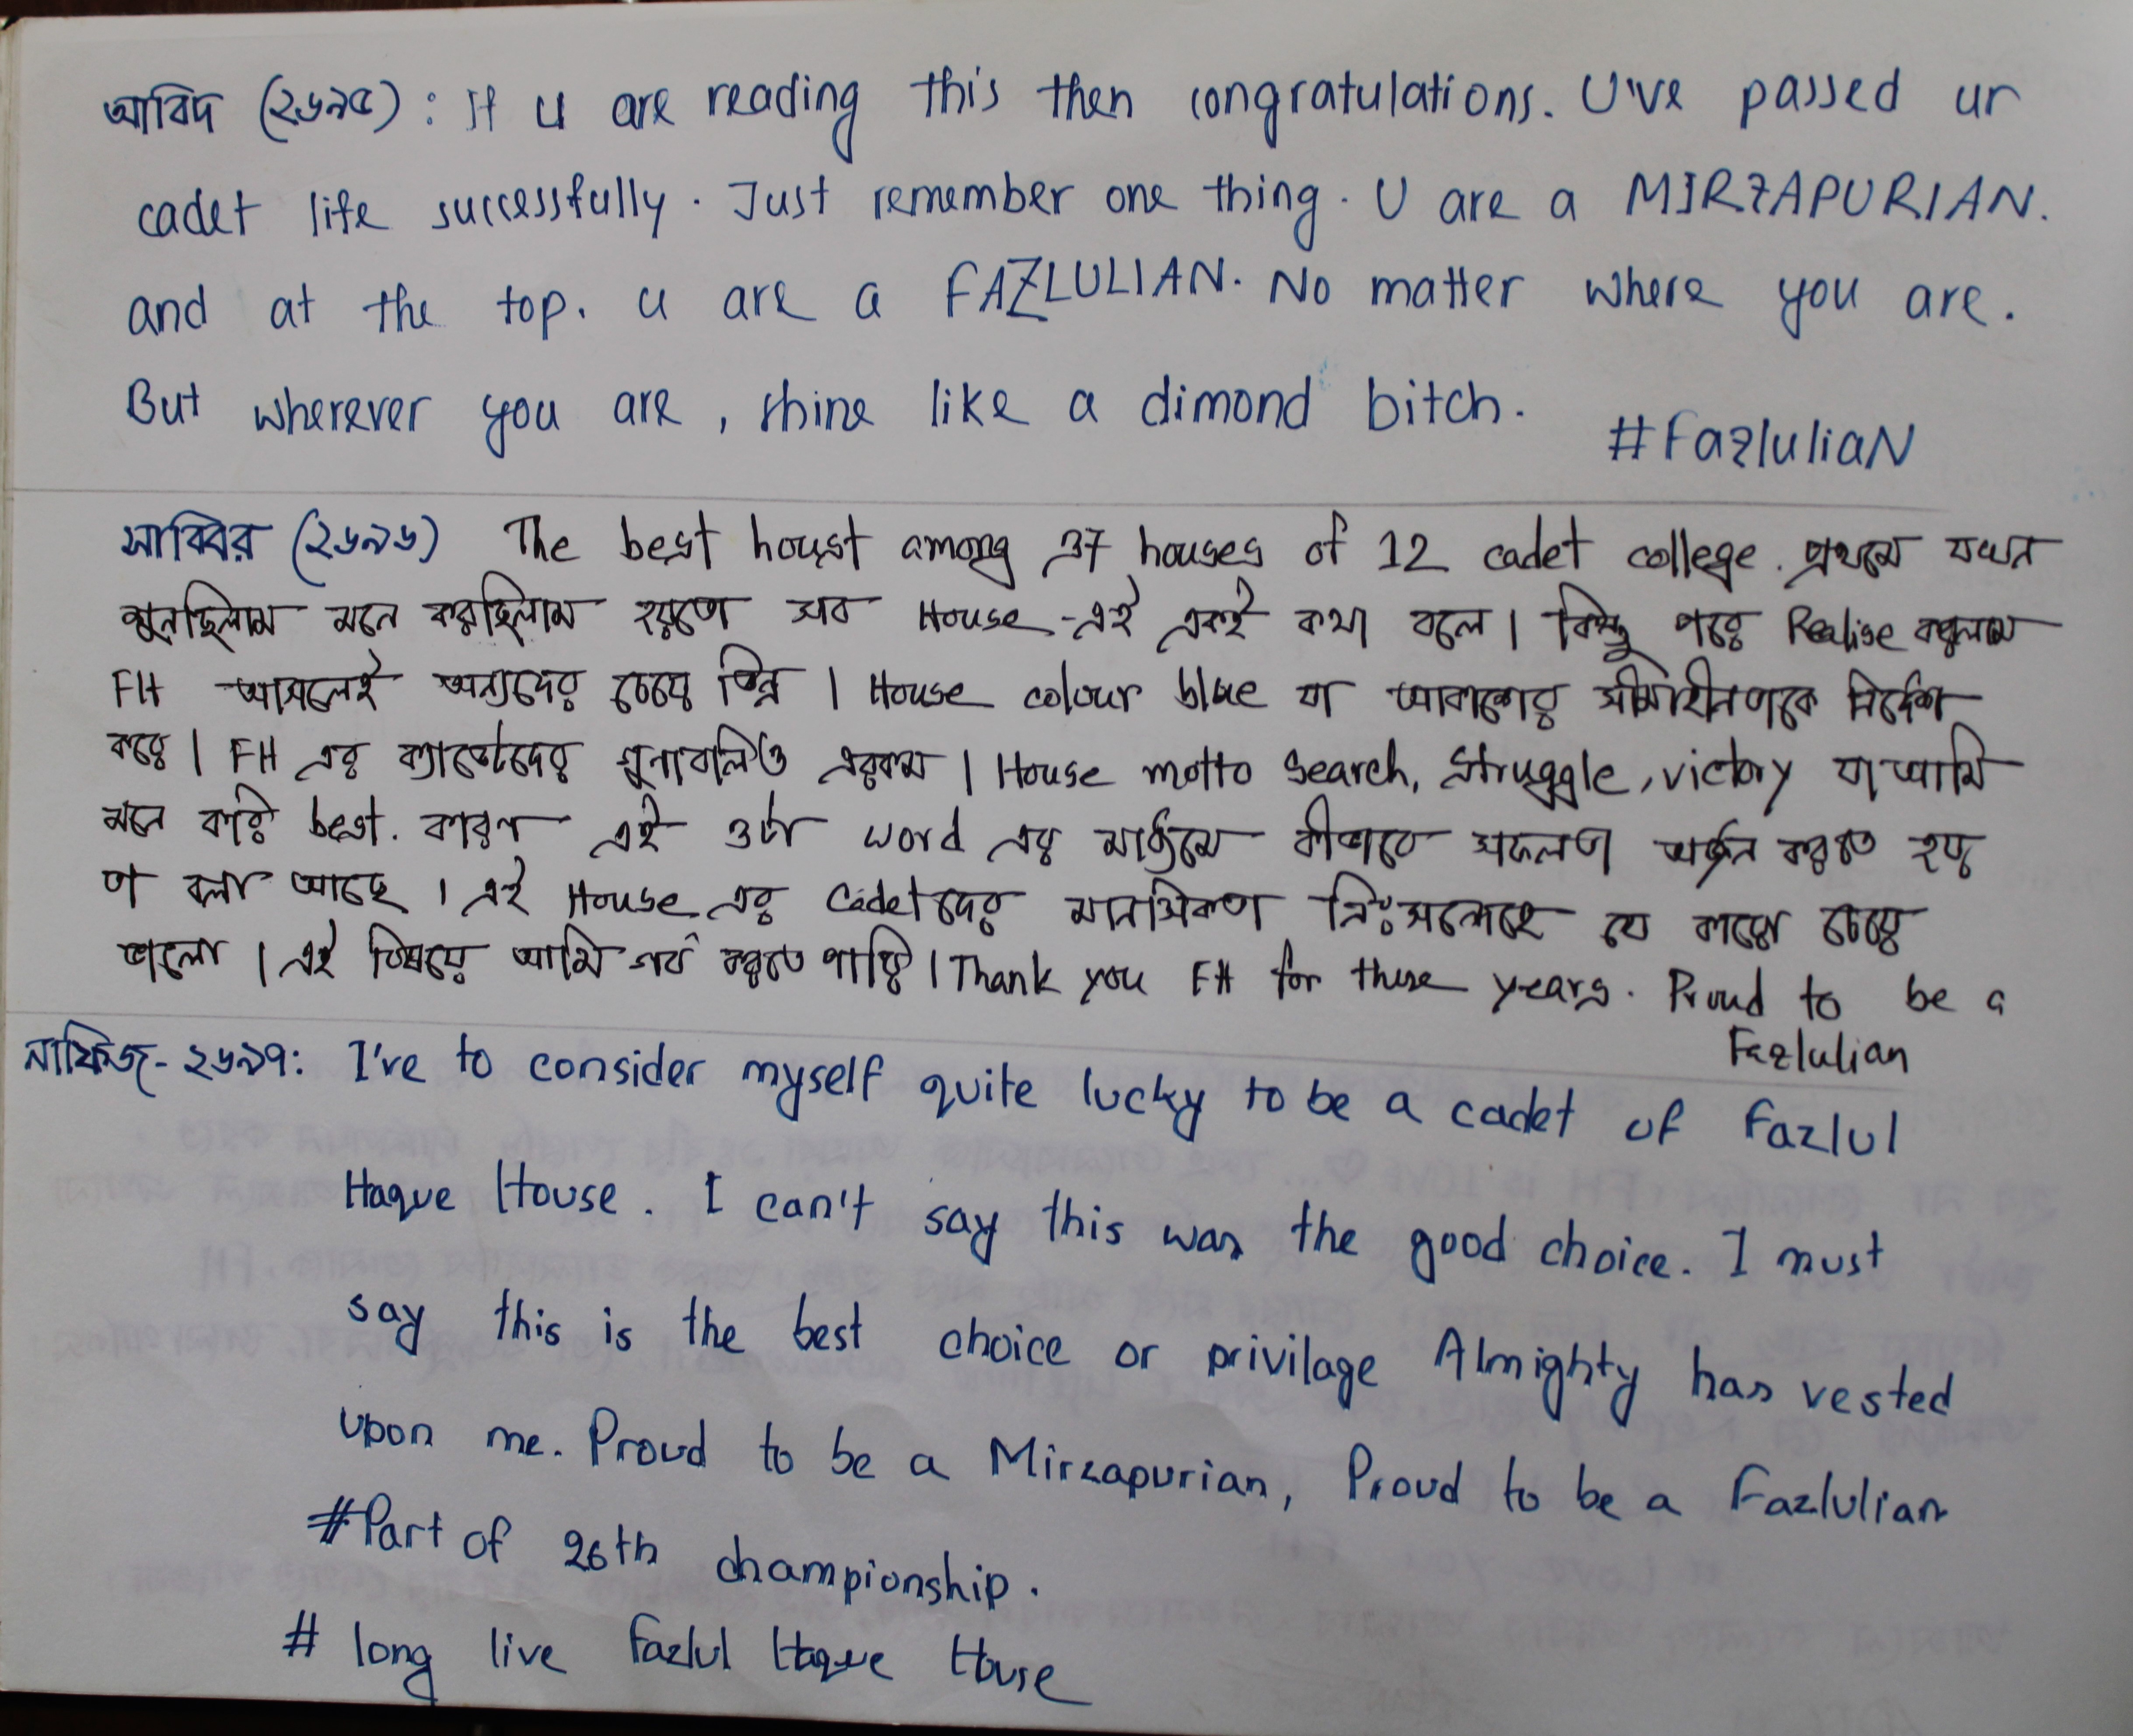 আবিদ (২৬৯৫) : If u are reading this then congratulations. U've passed ur
cadet life successfully. Just remember one thing. U are a MIRZAPURIAN.
and at the top. u are a FAZLULIAN. No matter where you are.
But wherever you are, shine like a dimond bitch.
#FazluliaN
সাব্বির (২৬৯৬) The best houst among 37 houses of 12 cadet college. প্রথমে যখন
শুনছিলাম মনে করছিলাম হয়তো সব House-এই একই কথা বলে। কিন্তু পরে Realise করলাম
FH আসলেই অন্যদের চেয়ে ভিন্ন। House colour blue যা আকাশের সীমাহীনতাকে নির্দেশ
করে। FH এর ক্যাডেটদের গুনাবলিও এরকম। House motto Search, Struggle, victory যা আমি
মনে করি best. কারণ এই ৩টা word এর মাধ্যমে কীভাবে সফলতা অর্জন করতে হয়
তা বলা আছে। এই House এর Cadetদের মানসিকতা নিঃসন্দেহে যে কারো চেয়ে
ভালো। এই বিষয়ে আমি গর্ব করতে পারি। Thank you FH for these years. Proud to be a
Fazlulian
নাফিজ-২৬৯৭: I've to consider myself quite lucky to be a cadet of Fazlul
Haque House. I can't say this was the good choice. I must
say this is the best choice or privilage Almighty has vested
upon me. Proud to be a Mirzapurian, Proud to be a Fazlulian
#Part of 26th championship.
# long live Fazlul Haque House